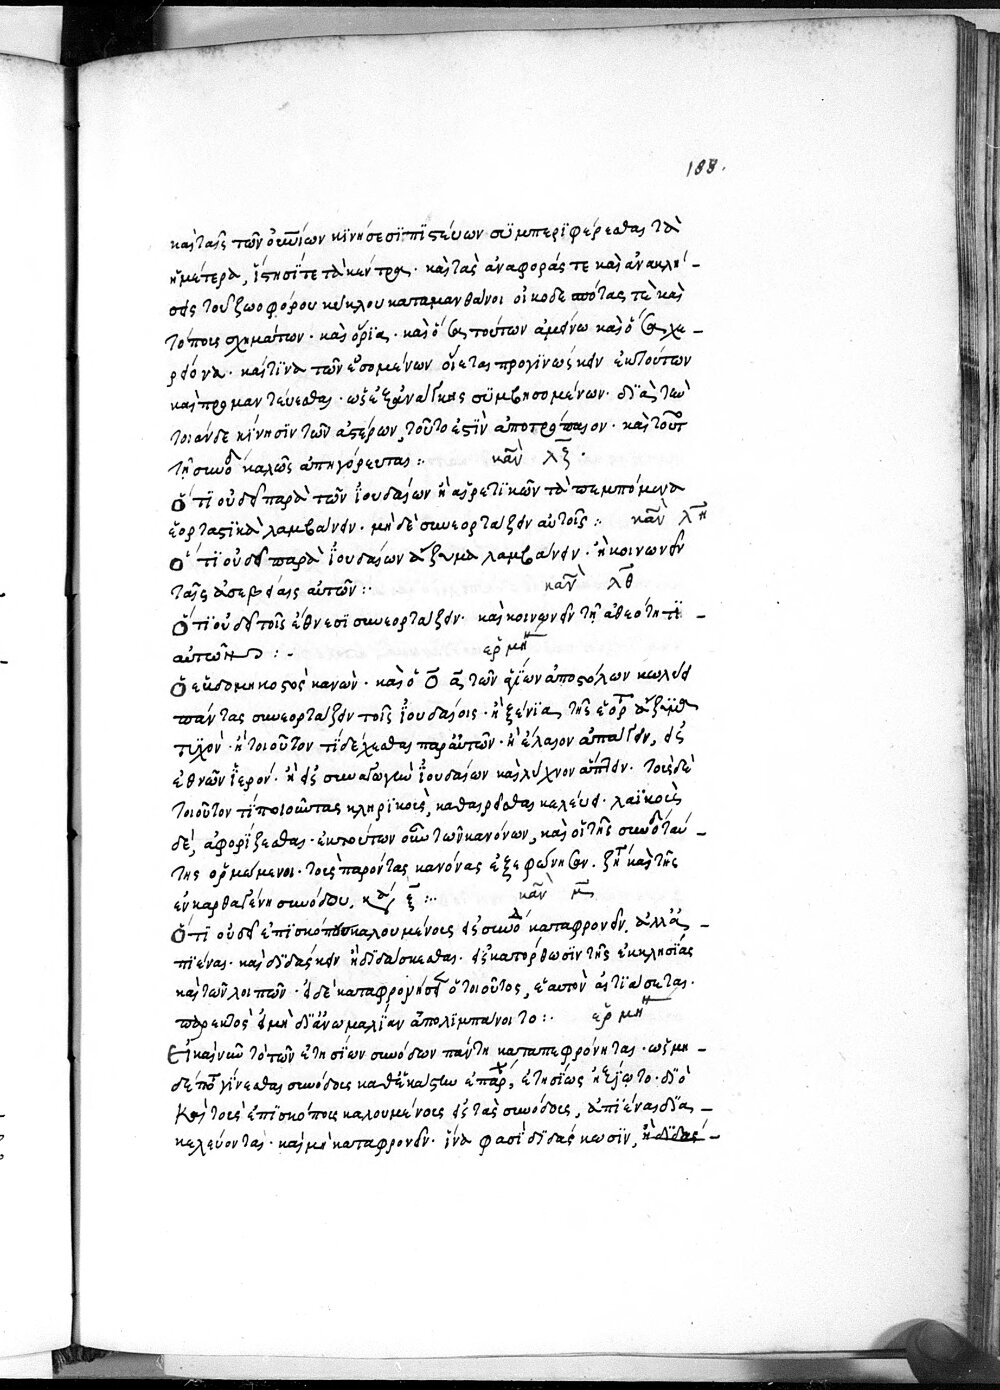 188.
καὶ ταῖς τῶν οὐρανίων κϊνήσεσϊ πϊστεύων συμπερϊφέρεσθαι τὰ
ἡμέτερα, ζητήσϊτε τὰ κέντρα· καὶ τὰς ἀναφοράς τε καὶ ἀνακλή –
σεις τοῦ ζωοφόρου κύκλου καταμανθάνοι οἰκοδεσπότας τὲ καὶ
τόποις σχημάτων· καὶ ὅρϊα· καὶ ὅσα τούτων ἀμείνω καὶ ὅσα χε –
ρείονα· καί τϊνα τῶν ἐσομένων οἴεται προγϊνώσκειν ἐκ τούτων
καὶ προμαντεύεσθαι· ὡς ἐξ ἀνάγκης συμβησομένων· διὰ τὴν
τοιάνδε κίνησϊν τῶν ἀστέρων, τοῦτο ἐστὶν ἀποτρόπαιον· καὶ τοῦτ
τῇ συνόδ καλῶς ἀπηγόρευται :· καν λζ·
Ὅτϊ οὐ δεῖ παρὰ τῶν Ἰουδαίων ἢ αἱρετϊκῶν τὰ πεμπόμενα
ἑορταστϊκὰ λαμβάνειν· μὴ δὲ συνεορτάζειν αὐτοῖς :· καν λη
Ὅτϊ οὐ δεῖ παρὰ Ἰουδαίων ἄζυμα λαμβάνειν· ἢ κοινωνεῖν
ταῖς ἀσεβείαις αὐτῶν :· καν λθ
Ὅτϊ οὐ δεῖ τοῖς ἔθνεσϊ συνεορτάζειν· καὶ κοινωνεῖν τῇ ἀθεότητϊ –
αὐτῶν :· ἑρμη
Ὁ ἑβδομηκοστὸς κανών· καὶ ὁ ο α τῶν ἁγίων ἀποστόλων κωλύει
πάντας συνεορτάζειν τοῖς Ἰουδαίοις· ἢ ξένϊα τῆς ἑορτ ἄζυμα
τυχόν· ἢ τοιοῦτον τϊ δέχεσθαι παρ' αὐτῶν· ἢ ἔλαιον ἀπάγειν, εἰς
ἐθνῶν ἱερόν· ἢ εἰς συναγωγὴν Ἰουδαίων καὶ λύχνον ἅπτειν· τοὺς δὲ
τοιοῦτον τϊ ποιοῦντας κληρϊκοὺς, καθαιρεῖσθαι κελεύει· λαϊκοὺς
δὲ, ἀφορίζεσθαι· ἐκ τούτων οὖν τῶν κανόνων, καὶ οἱ τῆς συνόδ ταύ –
της ὁρμώμενοι· τοὺς παρόντας κανόνας ἐξεφώνησαν· ζη καὶ τῆς
ἐν καρθαγένῃ συνόδου, κ ξ :· καν μ
Ὅτϊ οὐ δεῖ ἐπϊσκόπους καλουμένοις εἰς συνόδ καταφρονεῖν, ἀλλ' ἀ –
πϊέναι· καὶ δϊδάσκειν ἢ δϊδάσκεσθαι· εἰς κατόρθωσϊν τῆς ἐκκλησίας
καὶ τῶν λοιπῶν· εἰ δὲ καταφρονήσει ὁ τοιοῦτος, ἑαυτὸν αἰτϊάσεται·
παρεκτὸς εἰ μὴ δϊ' ἀνωμαλίαν ἀπολϊμπάνοιτο :· ἑρμη
Εἰ καὶ νῦν τὸ τῶν ἐτησϊων συνόδων πάντη καταπεφρόνηται· ὡς μη –
δέποτ γίνεσθαι συνόδοις καθ' ἑκάστην ἐπαρχ, ἐτησίως ἠξίωτο· δϊὸ
Καὶ τοὺς ἐπϊσκόποις καλουμένοις εἰς τὰς συνόδοις, ἀπϊέναι δϊα –
κελεύονται· καὶ μὴ καταφρονεῖν· ἵνα φασὶ δϊδάσκωσϊν, ἢ δϊδάσ –